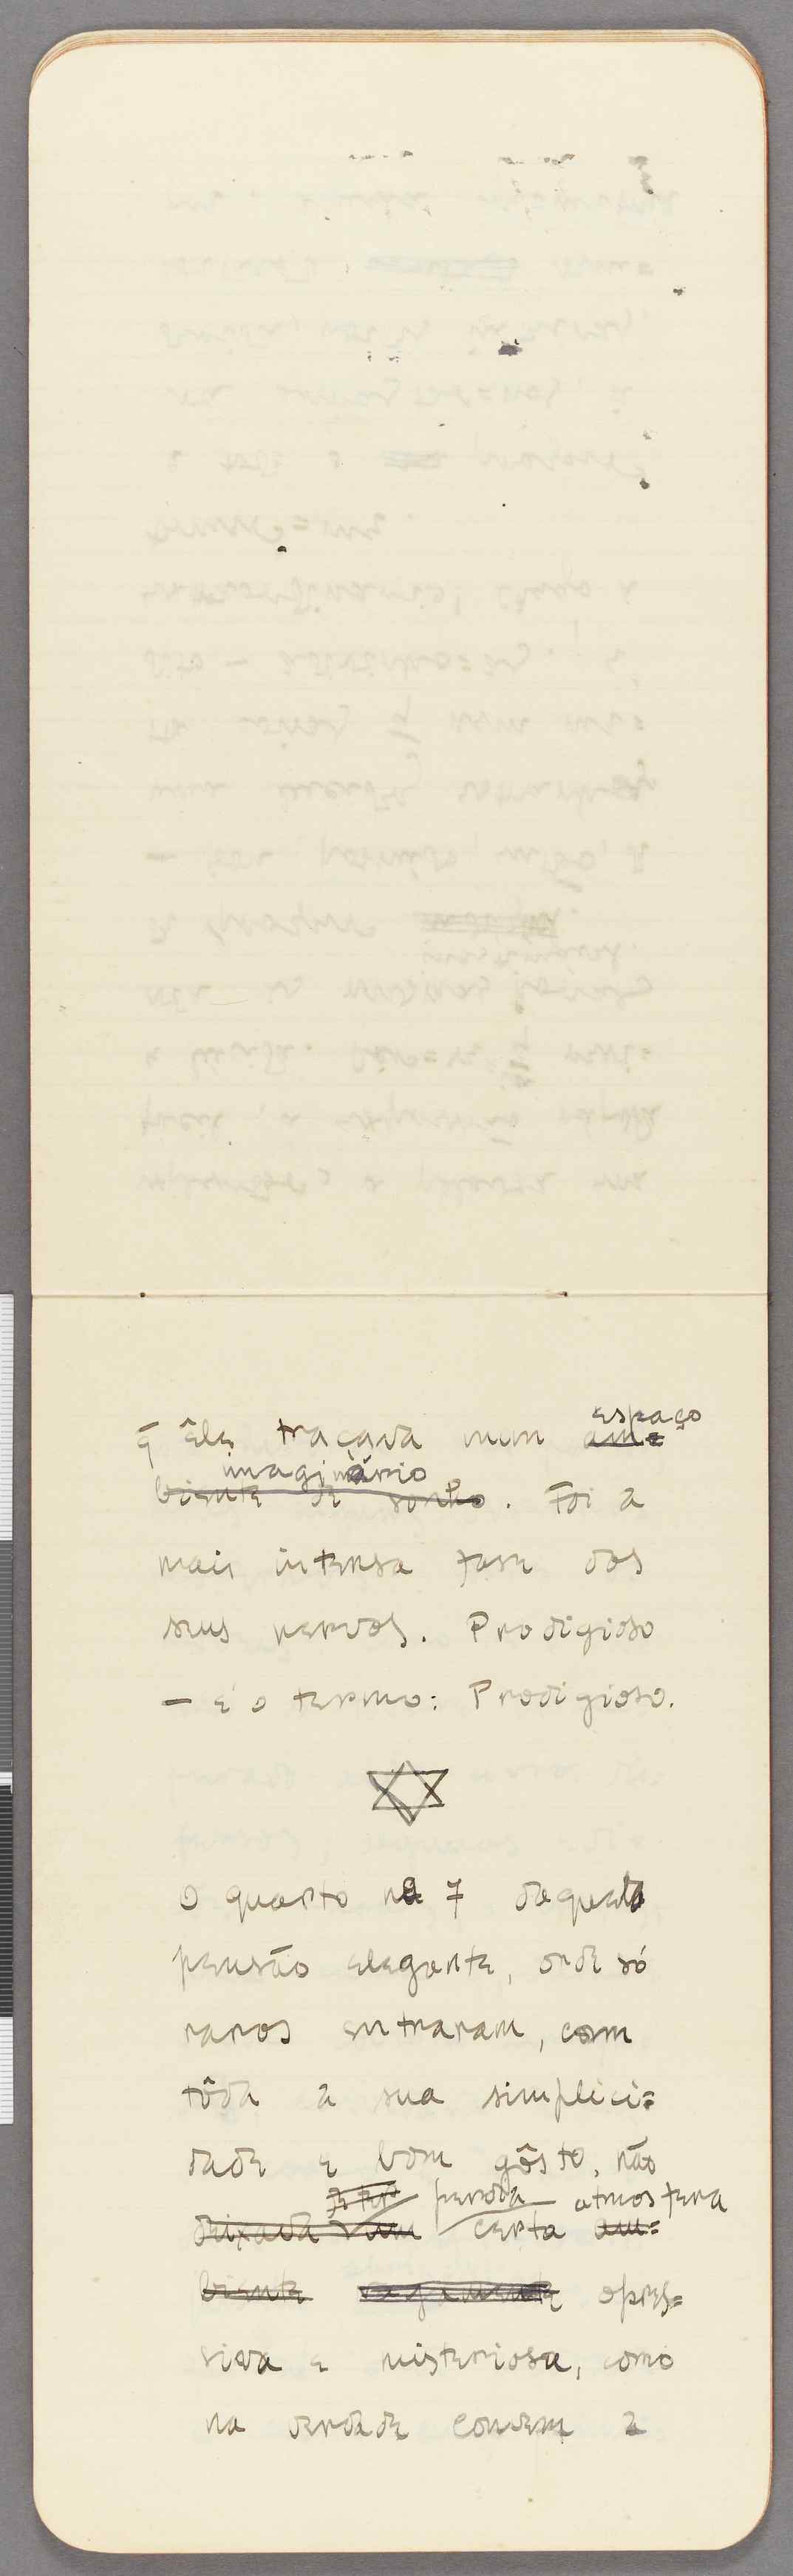 q̃ êle traçava num espaço am=
imaginário
biente de sonho. Foi a
mais intensa fase dos
seus nervos. Prodigioso
— é o termo: Prodigioso.
O quarto nº 7 daquela
pensão elegante, onde só
raros entraram, com
tôda a sua simplici=
dade e bom gôsto, não
perdia atmosfera
deixava num certa am=
biente vagamente opres=
siva e misteriosa, como
na verdade convem a